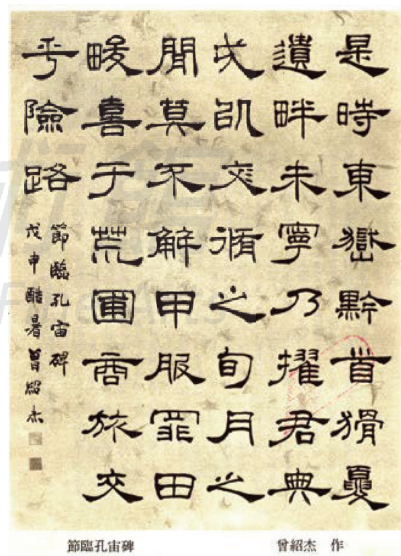 是時東嶽黔首猾夏
遺畔未寧乃擢君典
戎以文脩之旬月之
閒莫不解甲服罪田
畯喜于荒圃商旅交
乎險路
節臨孔宙碑
戊申酷暑曾紹杰
節臨孔宙碑
曾紹杰 作